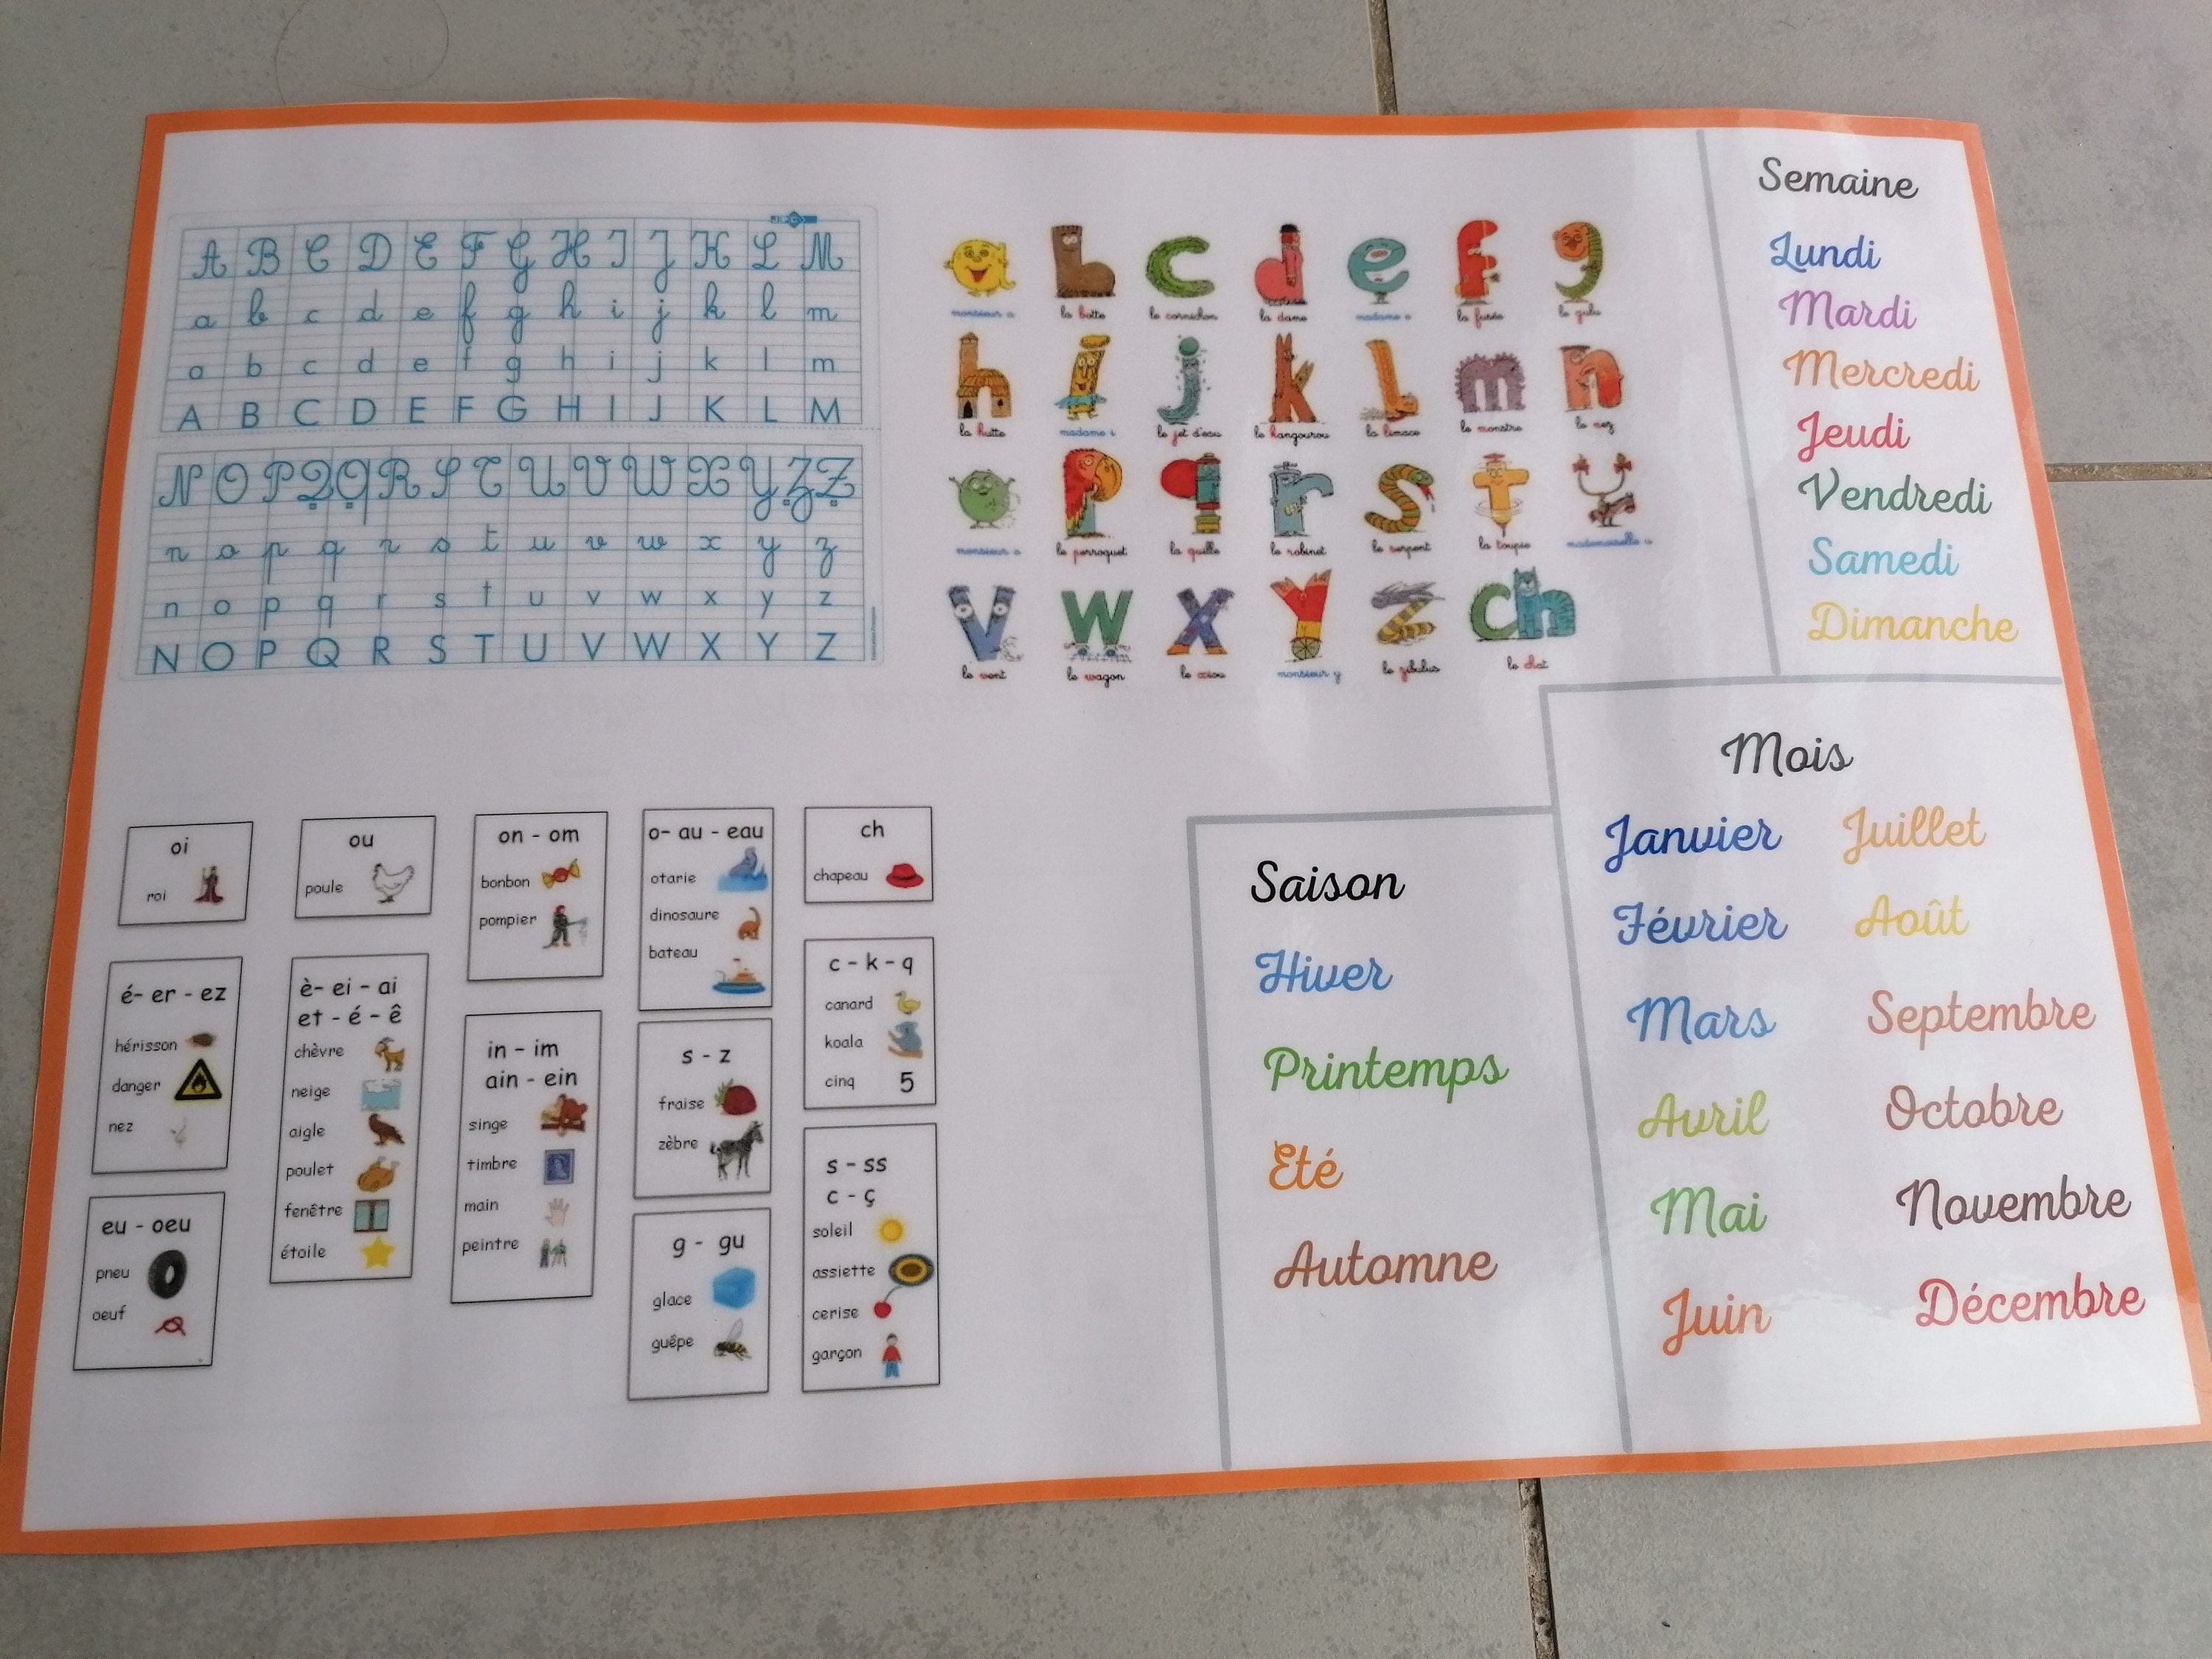 A B C D E F G H I J K L M
a b c d e f g h i j k l m
a b c d e f g h i j k l m
A B C D E F G H I J K L M
N O P Q Q R S T U V W X Y Z Z
n o p q r s t u v w x y z
n o p q r s t u v w x y z
N O P Q R S T U V W X Y Z
a b c d e f g
monsieur a la botte le cornichon la dame madame e la fusée le gulu
h i j k l m n
la hutte madame i le jet d'eau le kangourou la limace le monstre le nez
o p q r s t u
monsieur o le perroquet la quille le robinet le serpent la toupie mademoiselle u
v w x y z ch
le vent le wagon le xiou monsieur y le zibulus le chat
Semaine
Lundi
Mardi
Mercredi
Jeudi
Vendredi
Samedi
Dimanche
oi
roi
é- er - ez
hérisson
danger
nez
eu - oeu
pneu
oeuf
ou
poule
è- ei - ai
et - é - ê
chèvre
neige
aigle
poulet
fenêtre
étoile
on - om
bonbon
pompier
in - im
ain - ein
singe
timbre
main
peintre
o- au - eau
otarie
dinosaure
bateau
s - z
fraise
zèbre
g - gu
glace
guêpe
ch
chapeau
c - k - q
canard
koala
cinq 5
s - ss
c - ç
soleil
assiette
cerise
garçon
Saison
Hiver
Printemps
Eté
Automne
Mois
Janvier Juillet
Février Août
Mars Septembre
Avril Octobre
Mai Novembre
Juin Décembre